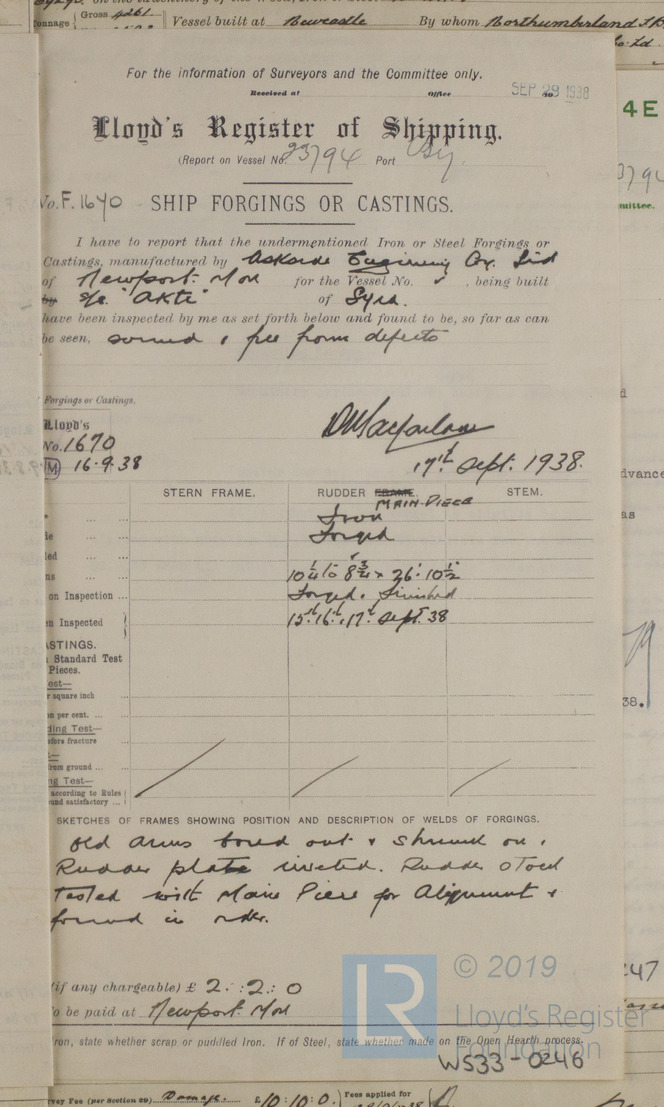 Tonnage { Gross 4261 Vessel built at Newcastle By whom Northumberland
Co. Ld.
For the information of Surveyors and the Committee only.
Received at Office SEP 29 1938
Lloyd's Register of Shipping.
4E
(Report on Vessel No. 23794 Port
3794
mittee.
No. F. 1670 SHIP FORGINGS OR CASTINGS.
I have to report that the undermentioned Iron or Steel Forgings or
Castings, manufactured by
of Newport. Mon for the Vessel No. , being built
by s/s. "AKTI" of Syra.
have been inspected by me as set forth below and found to be, so far as can
be seen, sound & free from defects
Forgings or Castings.
Lloyd's
No. 1670
M 16.9.38
D Macfarlane
17th Sept. 1938.
advance
as
STERN FRAME. RUDDER FRAME. STEM.
MAIN PIECE
Iron
Forged
10 1/4 to 8 3/4 x 26' 10 1/2
on Inspection ... Forged. Finished
n Inspected } 15th. 16th. 17th. Sept. 38
ASTINGS.
Standard Test
Pieces.
est—
r square inch ...
n per cent. ...
ding Test—
efore fracture ...
38.
from ground ...
ng Test—
according to Rules
ound satisfactory ...
SKETCHES OF FRAMES SHOWING POSITION AND DESCRIPTION OF WELDS OF FORGINGS.
Old arms bored out & shrunk on,
Rudder plate riveted. Rudder stock
Tested with Main Piece for Alignment &
found in order.
(if any chargeable) £ 2 : 2 : 0
o be paid at Newport. Mon
Iron, state whether scrap or puddled Iron. If of Steel, state whether made on the Open Hearth process.
LR
© 2019
Lloyd's Register
Foundation
WS33-0246
247
vey Fee (per Section 29) Damage. £ 10:10:0. } Fees applied for